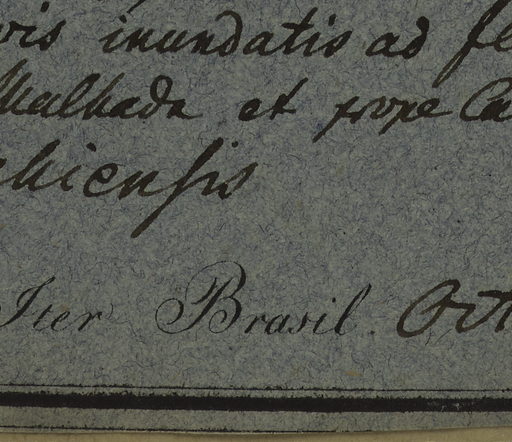 vis inundatis ad fl
Malhada et prope Ca
chiensis
Iter Brasil. Oct